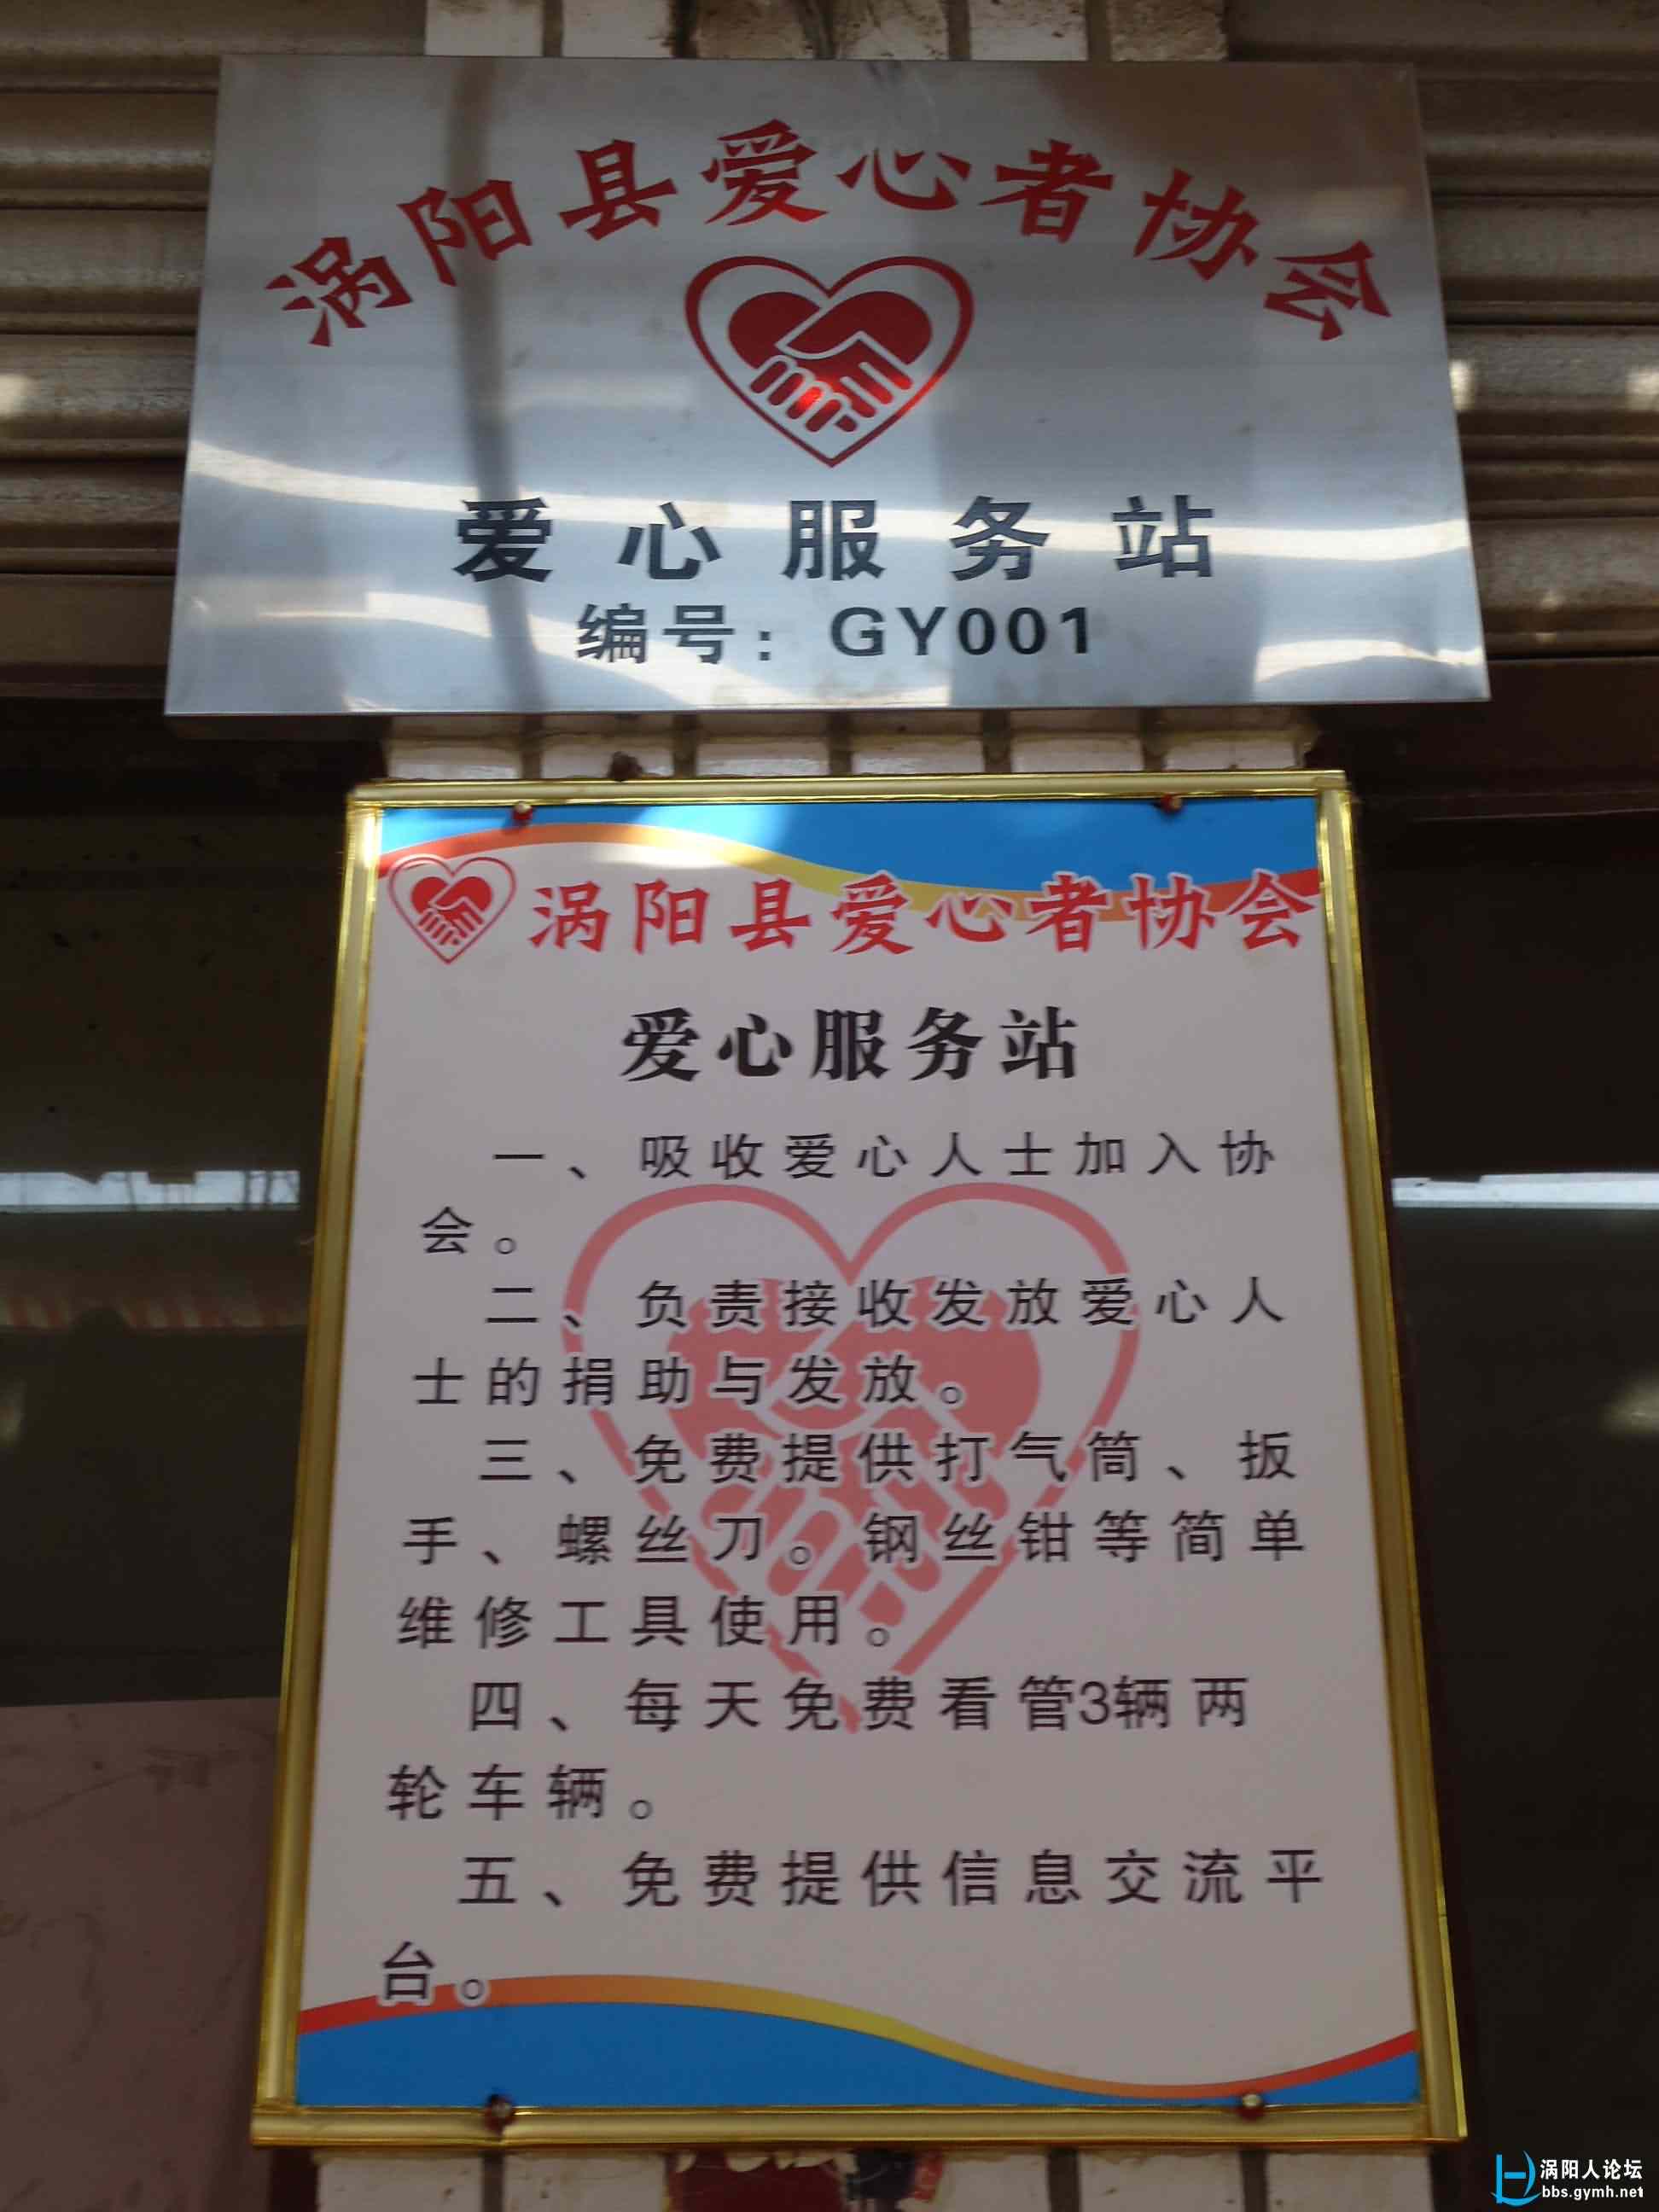 涡阳县爱心者协会
爱心服务站
编号：GY001
涡阳县爱心者协会
爱心服务站
一、吸收爱心人士加入协
会。
二、负责接收发放爱心人
士的捐助与发放。
三、免费提供打气筒、扳
手、螺丝刀。钢丝钳等简单
维修工具使用。
四、每天免费看管3辆两
轮车辆。
五、免费提供信息交流平
台。
涡阳人论坛
bbs.gymh.net